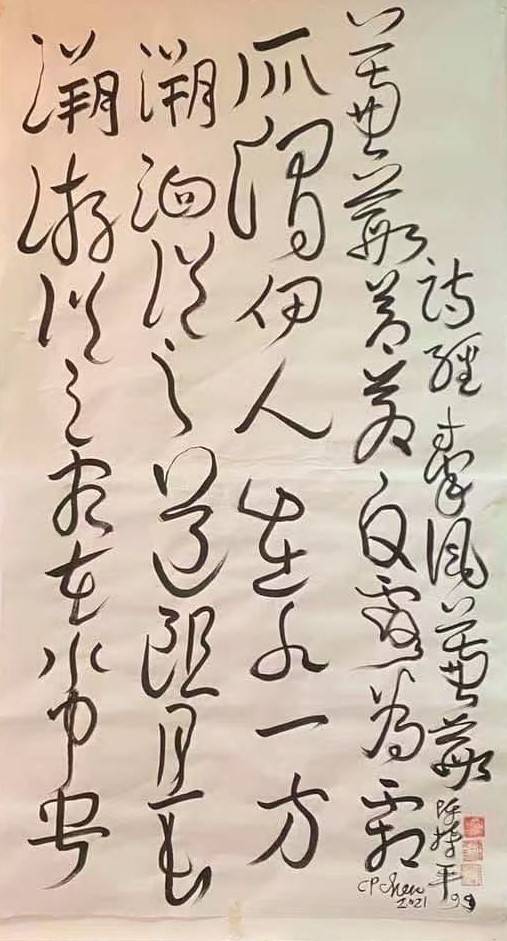 詩經秦風蒹葭
蒹葭蒼蒼白露為霜
所謂伊人在水一方
溯洄從之道阻且長
溯游從之宛在水中央
陳持平 99
CP Chen
2021